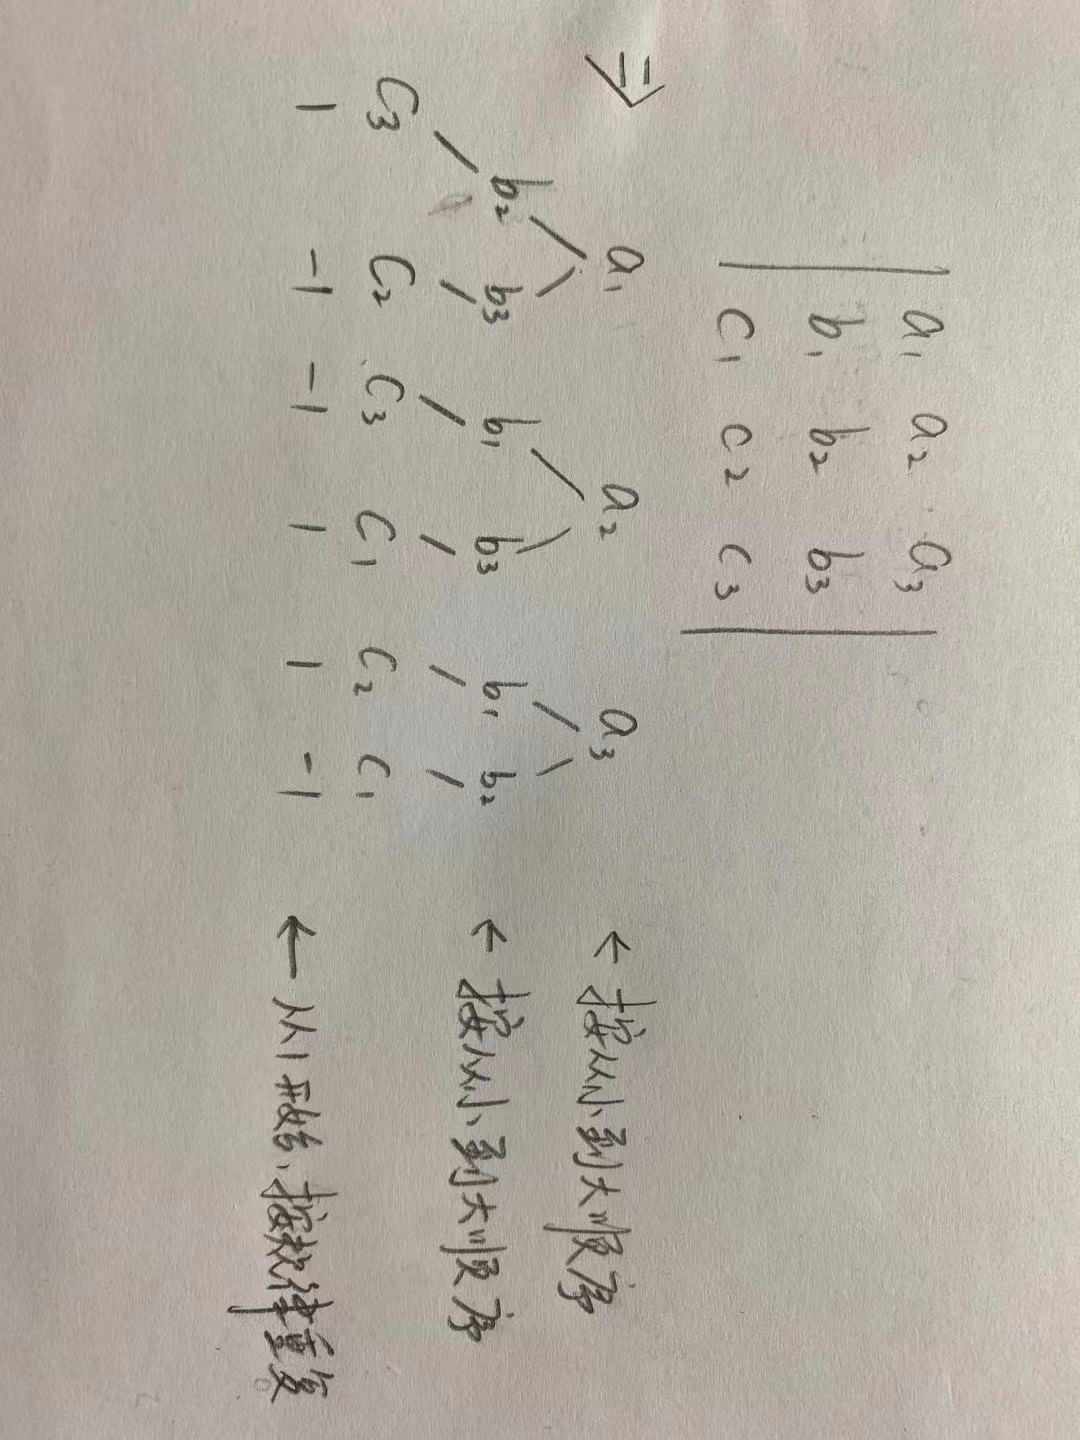 a₁ a₂ a₃
b₁ b₂ b₃
c₁ c₂ c₃
⇒ a₁ a₂ a₃ ← 按从小到大顺序
b₂ b₃ b₁ b₃ b₁ b₂ ← 按从小到大顺序
C₃ C₂ C₃ C₁ C₂ C₁
1 -1 -1 1 1 -1 ← 从1开始,按规律重复